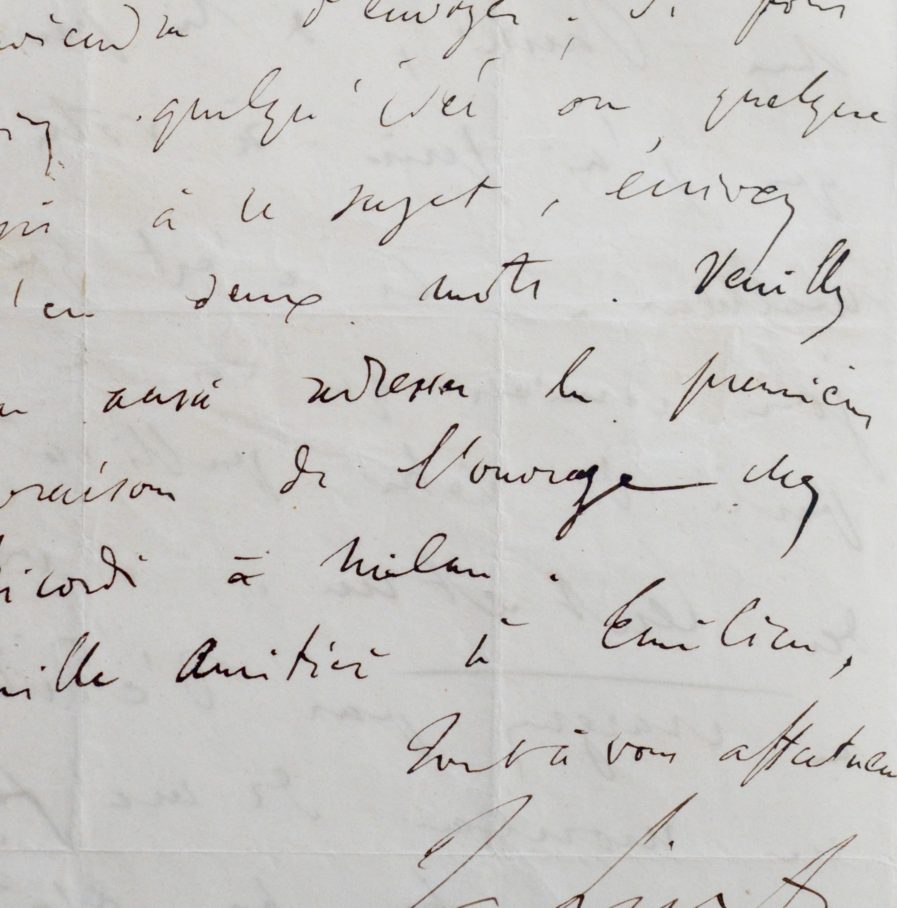 d'envoyer. Si vous
quelqu'idée ou quelque
à ce sujet, écrivez
m'en deux mots. Veuillez
aussi adresser la première
livraison de l'ouvrage chez
Ricordi à Milan.
mille amitiés à Émilien,
Tout à vous affectueu
F. Liszt